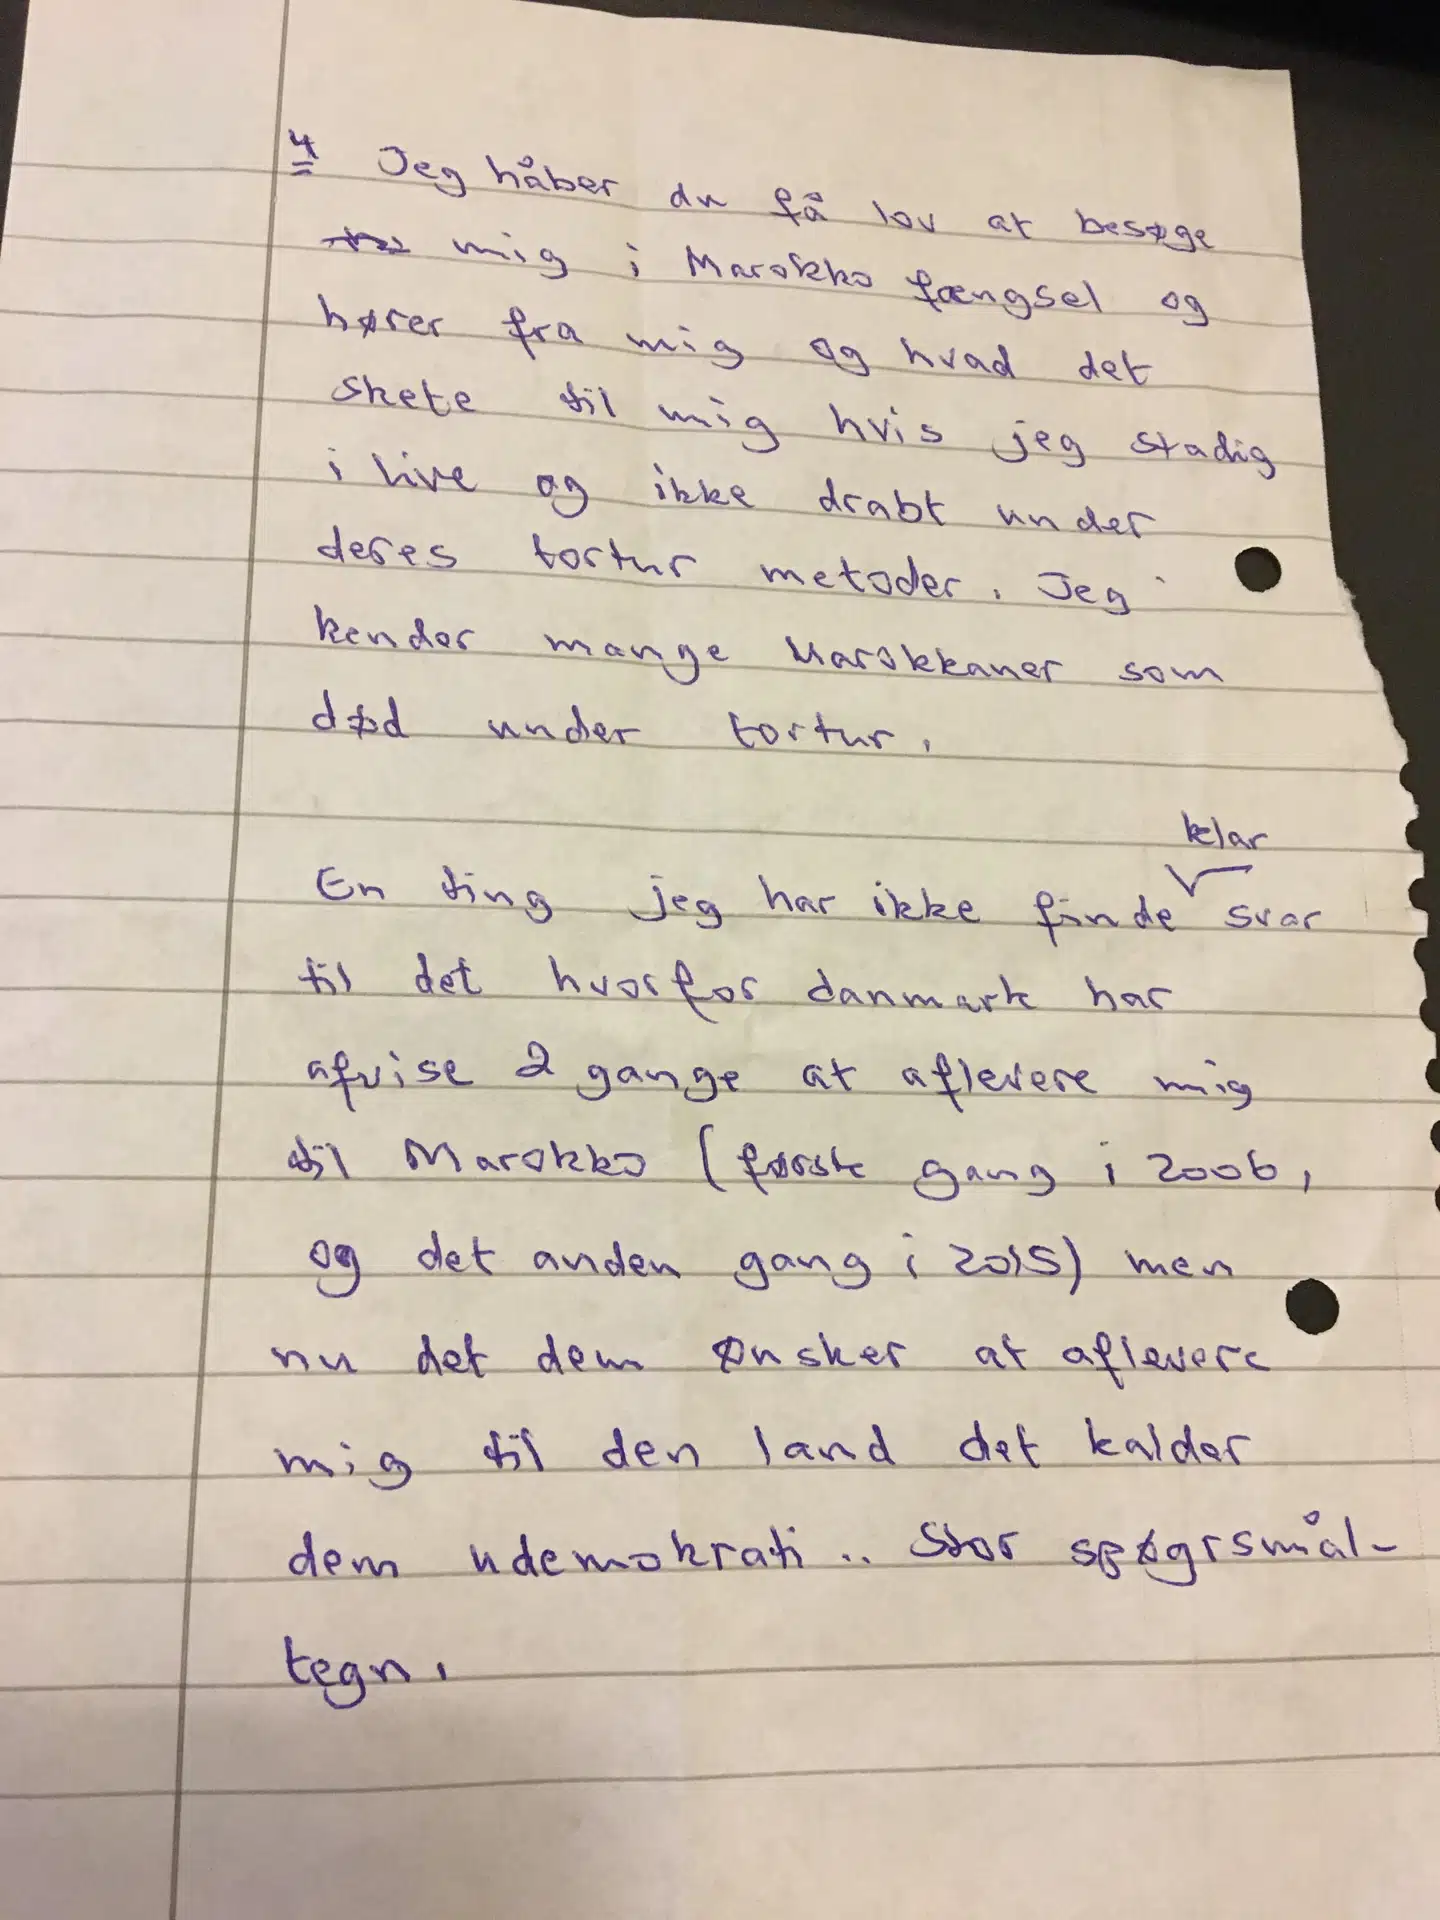 4 Jeg håber du få lov at besøge
mig i Marokko fængsel og
hører fra mig og hvad det
skete til mig hvis jeg stadig
i live og ikke drabt under
deres tortur metoder. Jeg
kender mange Marokkaner som
død under tortur.
klar
En ting jeg har ikke finde svar
til det hvorfor danmark har
afvise 2 gange at aflevere mig
til Marokko (første gang i 2006,
og det anden gang i 2015) men
nu det dem ønsker at aflevere
mig til den land det kalder
dem udemokrati .. Stor spøgrsmål-
tegn.